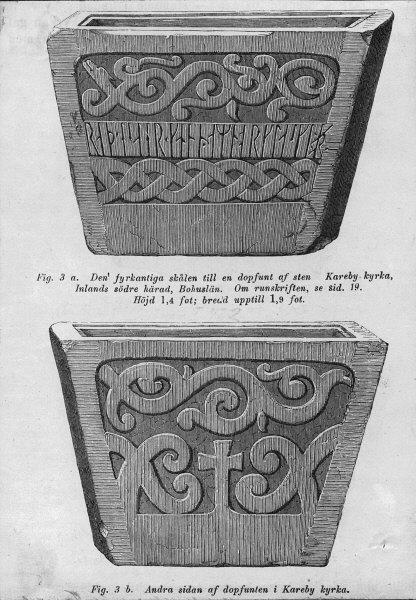 Fig. 3 a. Den fyrkantiga skålen till en dopfunt af sten Kareby kyrka,
Inlands södre härad, Bohuslän. Om runskriften, se sid. 19.
Höjd 1,4 fot; bredd upptill 1,9 fot.
Fig. 3 b. Andra sidan af dopfunten i Kareby kyrka.